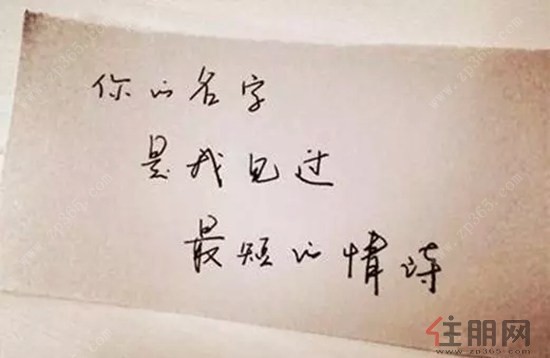 你的名字
是我见过
最短的情诗
住朋网
www.zp365.com